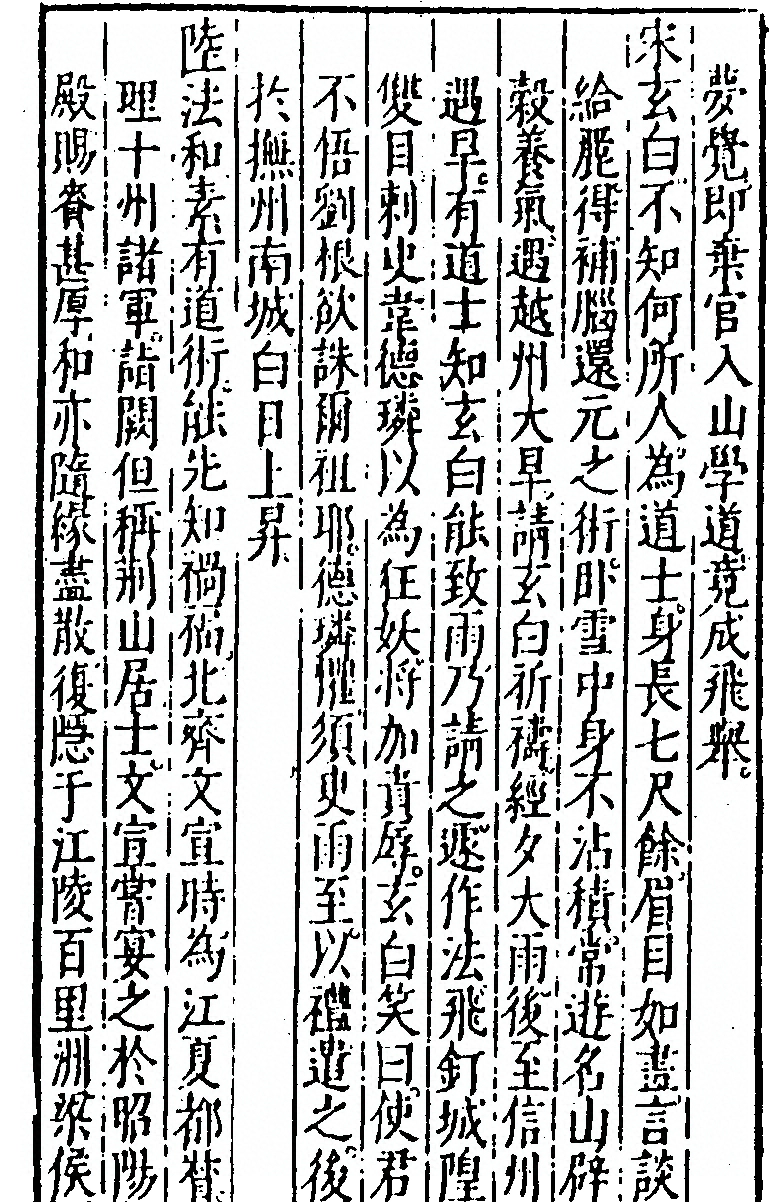 夢覺即棄官入山學道竟成飛舉。
宋玄白不知何所人為道士。身長七尺餘。眉目如畫言談
給膒得補腦還元之術。卧雪中身不沾積。常遊名山辟
穀養氣。遇越州大旱。請玄白祈禱。經夕大雨。後至信州
遇旱。有道士知玄白能致雨乃請之。遂作法飛釘城隍
雙目刺史韋德璘以為狂妖將加責辱。玄白笑曰。使君
不悟劉根欲誅爾祖耶。德璘懼須臾雨至。以禮遣之。後
於撫州南城白日上昇。
陸法和素有道術。能先知禍福。北齊文宣時為江夏都督
理十州諸軍。詣闕但稱荊山居士。文宣嘗宴之於昭陽
殿賜賚甚厚。和亦隨緣盡散復隱于江陵百里洲梁侯